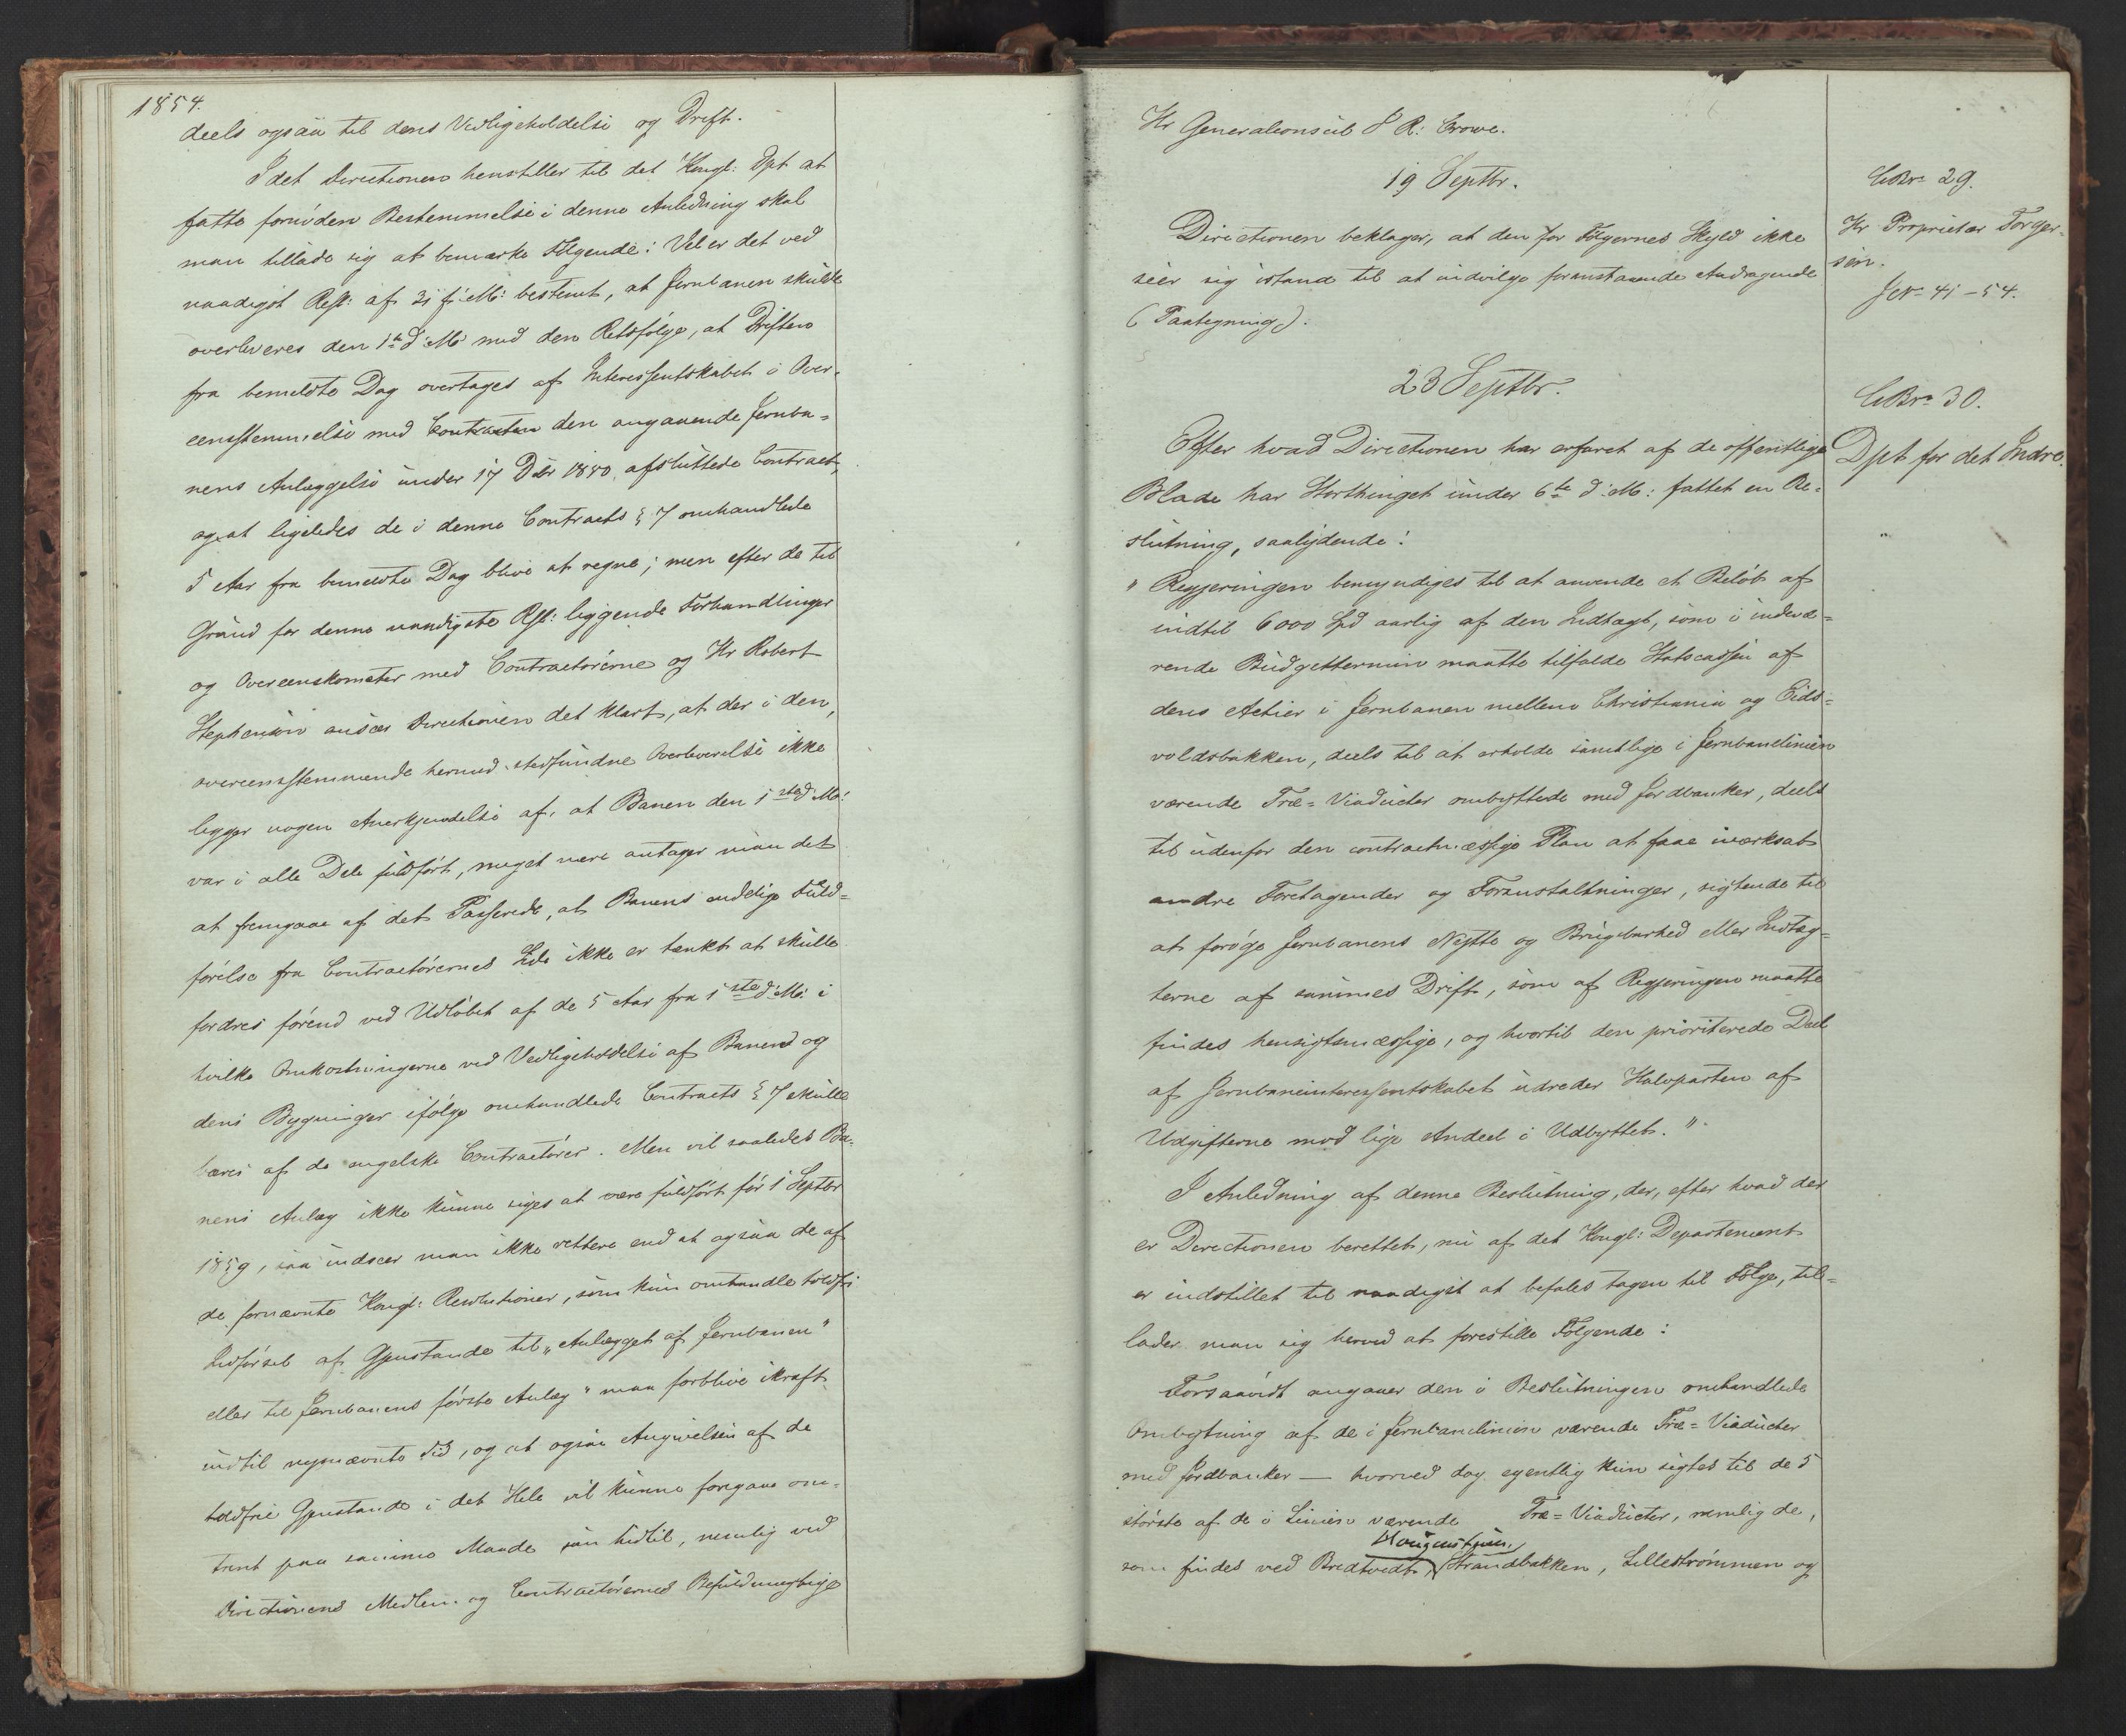 1854.
deels ogsaa til dens Vedligeholdelse og Drift.
Idet Directionen henstiller til det Kongl: Dpt at
fatte fornöden Bestemmelse i denne Anledning skal
man tillade sig at bemærke Følgende: Vel er det ved
naadigst Resl: af 31 f: M: bestemt, at Jernbanen skulde
overleveres den 1ste d: M: med den Retsfølge, at Driften
fra bemeldte Dag overtages af Interessentskabet i Over-
eensstemmelse med Contracten den angaaende Jernba=
nens Anlæggelse under 17 Dbr 1850 afsluttede Contract,
og at ligeledes de i denne Contracts § 7 omhandlede
5 Aar fra bemeldte Dag blive at regne; men efter de til
Grund for denne naadigste Resl: liggende Forhandlinger
og Overeenskomster med Contractörerne og Hr Robert
Stephenson anseer Directionen det klart, at der i den,
overeensstemmende hermed stedfundne Overleverelse ikke
ligger nogen Anerkjendelse af, at Banen den 1ste d: M:
var i alle Dele fuldført, meget mere antager man det
at fremgaae af det Passerede, at Banens endelige Fuld=
førelse fra Contractörernes Side ikke er tænkt at skulle
fordres förend ved Udløbet af de 5 Aar fra 1ste d: M: i
hvilke Omkostningerne ved Vedligeholdelse af Banen og
dens Bygninger ifölge omhandlede Contracts § 7 skulle
bæres af de engelske Contractörer. Men vil saaledes Ba-
nens Anlæg ikke kunne siges at være fuldført før 1 Septbr
1859, saa indseer man ikke rettere end at ogsaa de af
de fornævnte Kongl: Resolutioner, som kun omhandle toldfri
Indførsel af Gjenstande til "Anlægget af Jernbanen"
eller til Jernbanens første Anlæg" maa forblive ikraft
indtil nysnævnte Tid, og at ogsaa Angivelsen af de
toldfrie Gjenstande i det Hele vil kunne foregaae om-
trent paa samme Maade som hidtil, nemlig ved
Directionens Medlem og Contractörernes Befuldmægtige
Hr Generalconsul J R: Crowe.
19 Septbr.
CBr: 29.
Hr Proprietær Torger-
sen.
J No 41-54.
Directionen beklager, at den for Følgernes Skyld ikke
seer sig istand til at indvilge foranstaaende Andragende
(Paategning).
23 Septbr.
CBr: 30.
Dpt for det Indre.
Efter hvad Directionen har erfaret af de offentlige
Blade har Storthinget under 6te d: M: fattet en Be-
slutning, saalydende:
" Regjeringen bemyndiges til at anvende et Beløb af
indtil 6000 Spd aarlig af den Indtægt, som i indevæ=
rende Budgettermin maatte tilfalde Statscassen af
dens Actier i Jernbanen mellem Christiania og Eids=
voldsbakken, deels til at erholde samtlige i Jernbanelinien
værende Træ=Viaducter ombyttede med Jordbanker, deels
til udenfor den contractmæssige Plan at faae iværksat
andre Foretagender og Foranstaltninger, sigtende til
at forøge Jernbanens Nytte og Brugbarhed eller Indtæg=
terne af sammes Drift, som af Regjeringen maatte
findes hensigtsmæssige, og hvortil den prioriterede Deel
af Jernbaneinteressentskabet udreder Halvparten af
Udgifterne mod lige Andeel i Udbyttet."
I Anledning af denne Beslutning, der, efter hvad der
er Directionen berettet, nu af det Kongl: Departement
er indstillet til naadigst at befales tagen til Følge, til=
lader man sig herved at forestille Følgende:
Forsaavidt angaaer den i Beslutningen omhandlede
Ombytning af de i Jernbanelinien værende Træ=Viaducter
med Jordbanker — hvorved dog egentlig kun sigtes til de 5
største af de i Linien værende Træ=Viaducter, nemlig de,
Haugenstuen,
som findes ved Bredtvedt, Strandbakken, Lillestrømmen og